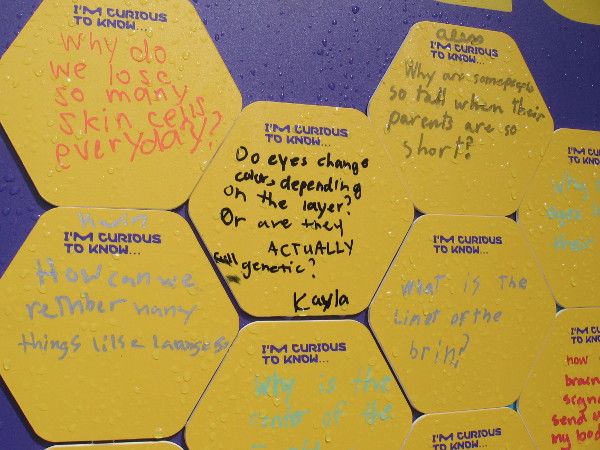 I'M CURIOUS
TO KNOW...
Why do
we lose
so many
skin cells
everyday?
aless
I'M CURIOUS
TO KNOW...
Why are some people
so tall when their
parents are so
short?
I'M CURIOUS
TO KNOW...
Do eyes change
color, depending
on the layer?
Or are they
ACTUALLY
full genetic?
Kayla
I'M CU
TO KN
Why
eyes
their
I'M CURIOUS
TO KNOW...
How can we
rember many
things like
I'M CURIOUS
TO KNOW...
What is the
limet of the
brin?
I'M CURIOUS
TO KNOW...
Why is the
center of the
I'M
TO
how
brain
signa
send
my bod
I'M CURIOUS
TO KNOW...